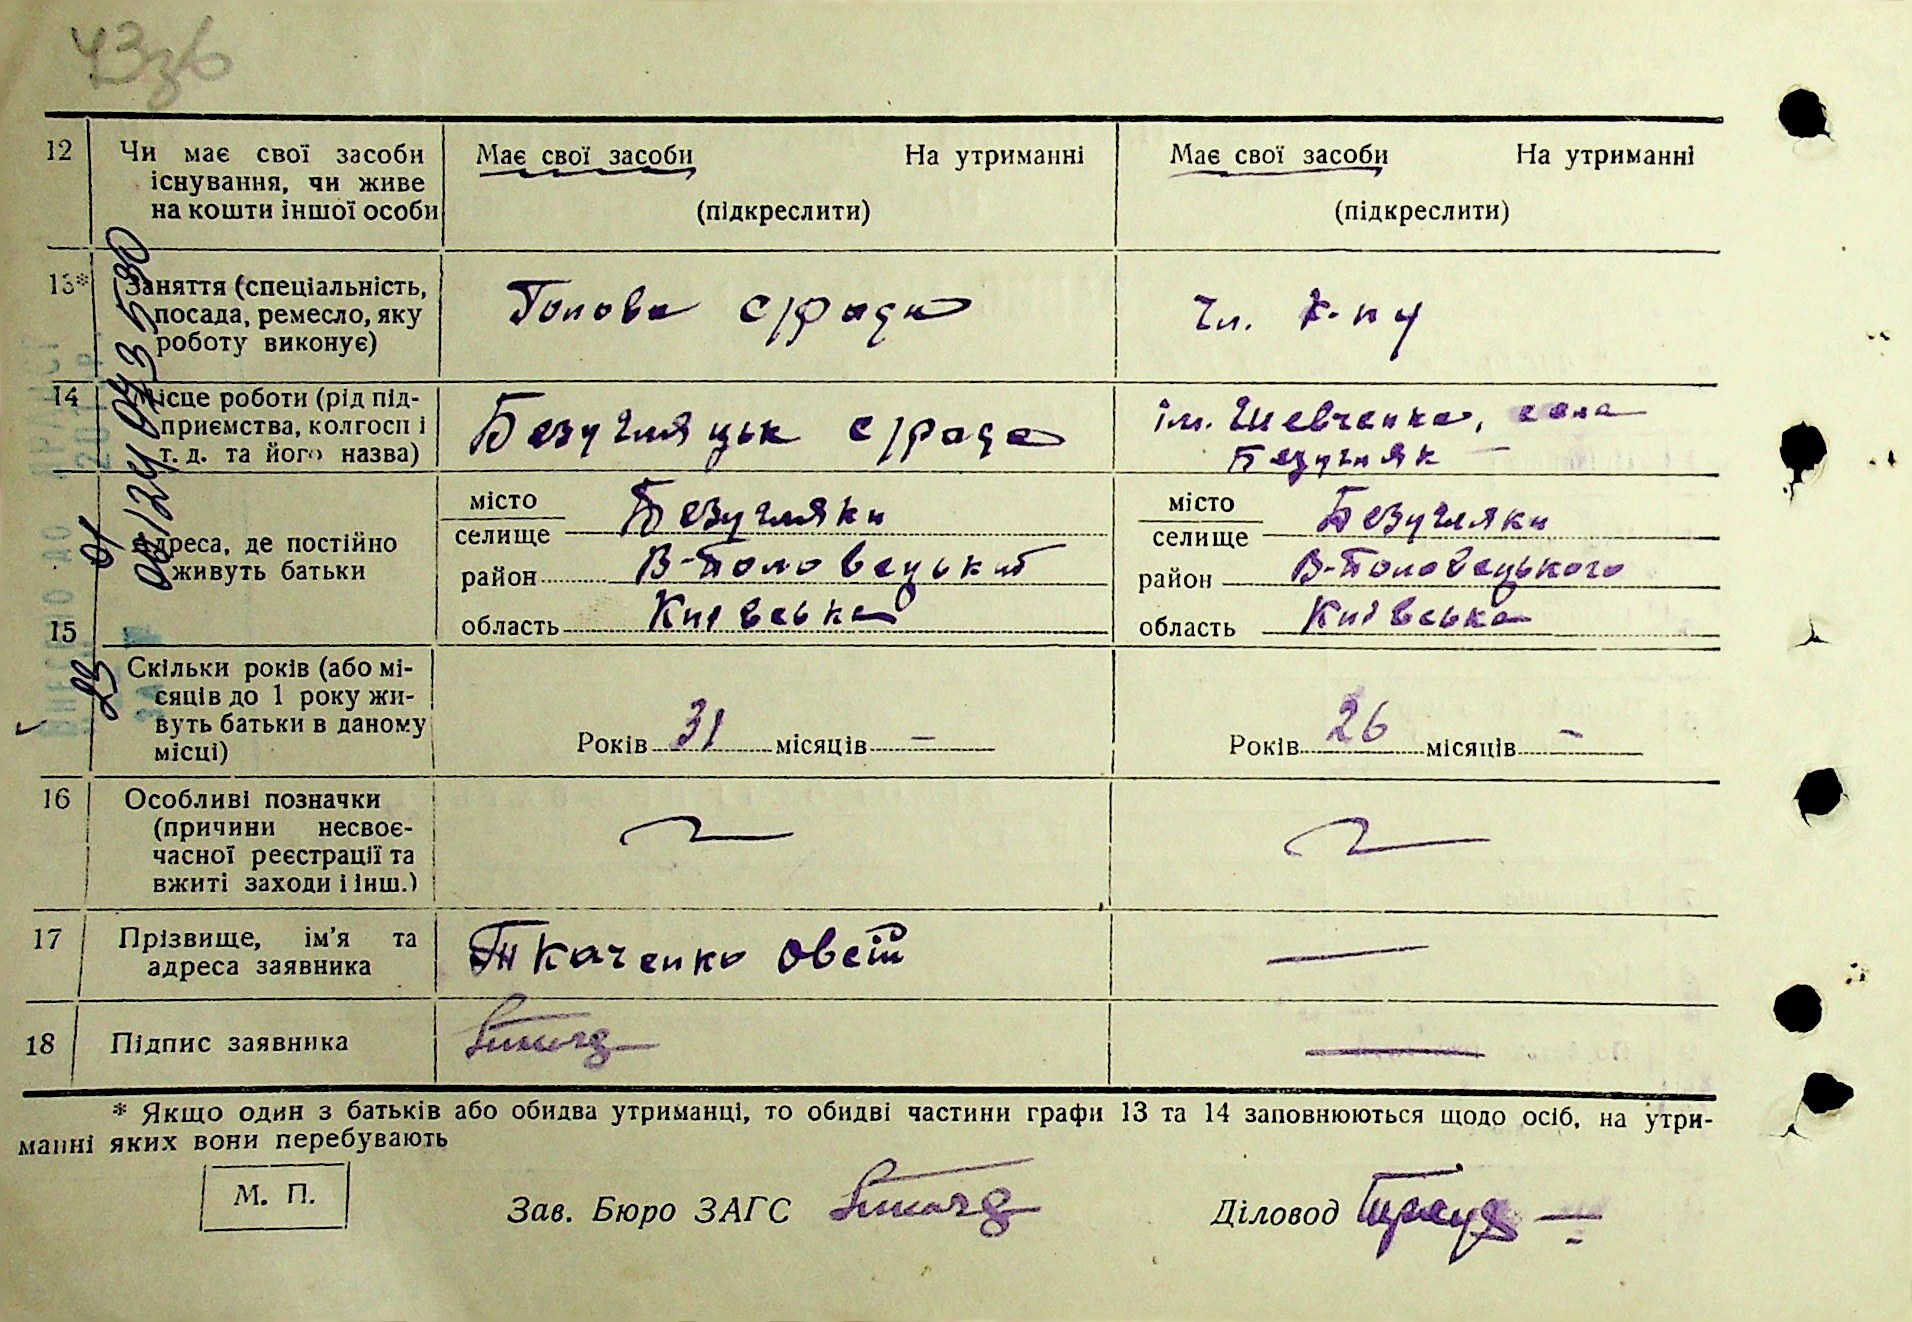 43зв
12
Чи має свої засоби
існування, чи живе
на кошти іншої особи
Має свої засоби На утриманні
(підкреслити)
Має свої засоби На утриманні
(підкреслити)
13*
Заняття (спеціальність,
посада, ремесло, яку
роботу виконує)
Голова с/ради
Чл. к-пу
14
Місце роботи (рід під-
приємства, колгосп і
т. д. та його назва)
Безугляцьк с/рада
ім. Шевченка, села
Безугляк
15
Адреса, де постійно
живуть батьки
місто
селище Безугляки
район В-Половецький
область Київська
місто
селище Безугляки
район В-Половецького
область Київська
Скільки років (або мі-
сяців до 1 року жи-
вуть батьки в даному
місці)
Років 31 місяців –
Років 26 місяців –
16
Особливі позначки
(причини несвоє-
часної реєстрації та
вжиті заходи і інш.)
17
Прізвище, ім'я та
адреса заявника
Ткаченко Овсій
18
Підпис заявника
* Якщо один з батьків або обидва утриманці, то обидві частини графи 13 та 14 заповнюються щодо осіб, на утри-
манні яких вони перебувають
М. П.
Зав. Бюро ЗАГС
Діловод